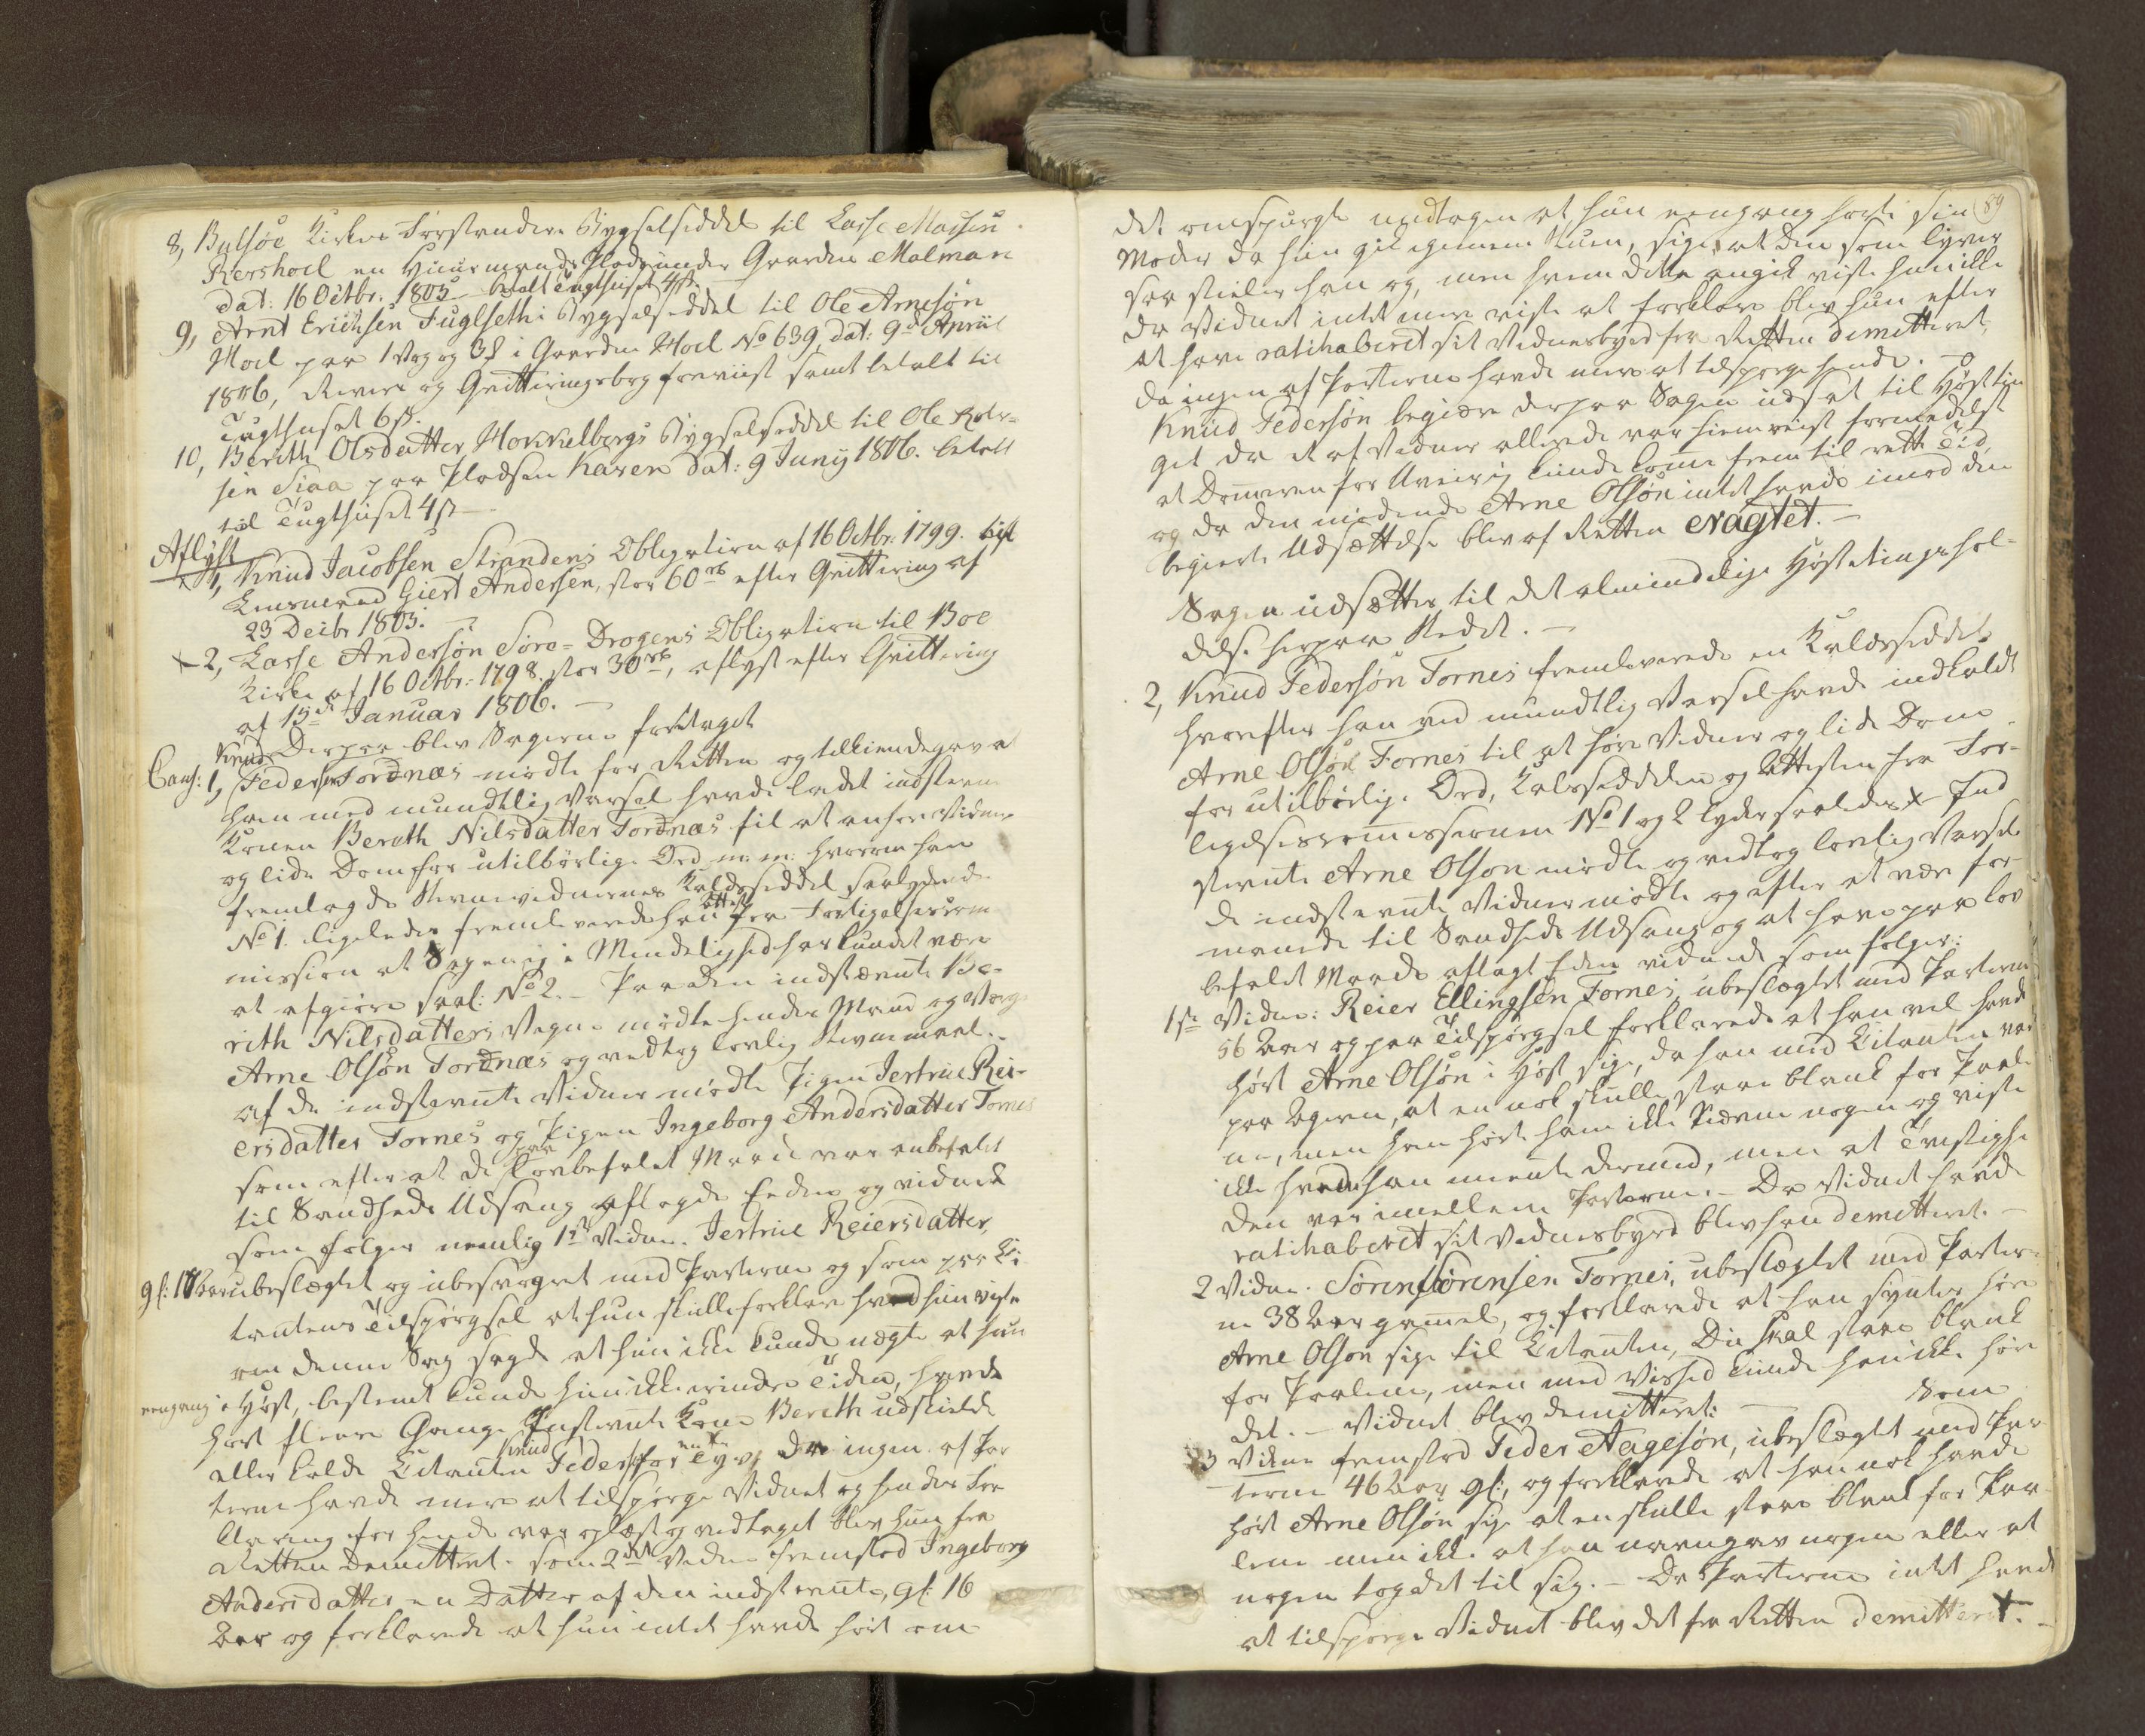 8, Bulsøe Kirkes Forstanders Bygselseddel til Lasse Madsen
Kershoel en Huusmands Plads under Gaarden Malman
dat: 16 Octbr. 1805 betalt Tugthuset 4ß.
9, Arnt Erichsen Fuglseth's Bygselseddel til Ole Arnesøn
Hoel paa 1 Vog og 3 i Gaarden Hoel No 639, dat: 9de April
1806, Revers og Qvitteringsbog foreviist samt betalt til
Tugthuset 6ß.
10, Berith Olsdatter Hokkelbergs Bygselseddel til Ole
sen Siaa paa Pladsen Karen dat: 9 Juny 1806. betalt
til Tugthuset 4ß —
Aflyst
1, Knud Jacobsen Strandens Obligation af 16 Octbr: 1799. til
Giert Andersen, stor 60 rd efter Qvittering af
23 Decbr 1805. —
2, Lasse Andersøn Søre-Drogens Obligation til Boe
Kirke af 16 Octbr: 1798. stor 30 rd, aflyst efter Qvittering
af 15de Januar 1806. —
Derpaa blev Sagerne foretaget
Caus: 1, Knud Pedersen Tordnæs mødte for Retten og tilkiendegav at
han med mundtlig Varsel havde ladet indstevne
Konen Bereth Nilsdatter Tordnæs til at anhøre Vidner
og lide Dom for utilbørlige Ord m: m: hvorom han
fremlagde Stevnevidnernes Kaldsseddel saalydende
No 1. ligeledes fremleverede han Attest fra Forligelsescom
mission at Sagen ej i Mindelighed har kundet være
at afgiøre saal: No 2. — Paa den indstævnte Be-
rith Nilsdatters Vegne mødte hendes Mand og Verge
Arne Olsøn Tordnæs og vedtog lovlig Stevnemaal. —
af de indstevnte Vidner mødte Pigen Jertrue Rei-
ersdatter Tornes og Pigen Ingeborg Andersdatter Tornes
som efter at de paa Lovbefalet Maade var anbefalet
til Sandheds Udsagn aflagde Eeden og vidnede
som følger nemlig 1ste Vidne Jertrue Reiersdatter,
gl: 18 Aar ubeslægtet og ubesvogret med Parterne og som paa Ci
tantens Tilspørgsel at hun skulle forklare hvad hun viste
om denne Sag sagde at hun ikke kunde nægte at hun
eengang i Høst, bestemt kunde hun ikke erindre Tiden, havde
hørt flere Gange Instevnte Kone Bereth udskielde
eller kalde Citanten Knud Peders: for en Tyv, da ingen af Par
terne havde mere at tilspørge Vidnet og hendes For
klaring for hende var oplæst og vedtaget blev hun fra
Retten Demitteret. Som 2det Vidne fremstod Ingeborg
Andersdatter en Datter af den indstevnte, gl: 16
Aar og forklarede at hun intet havde hørt om
89
det omspurgte undtagen at hun eengang hørte sin
Moder da hun gik igiennem Stuen, sige at den som lyver
saa stieler han og, men hvem dette angik viste hun ikke
da Vidnet intet mere viste at forklare blev hun efter
at have ratihaberet sit Vidnesbyrd fra Retten demitteret,
da ingen af Parterne havde mere at tilspørge hende. —
Knud Pedersøn begiære derpaa Sagen udsat til Høsttin
get da et af Vidner allerede var hiemreist formedelst
at Dommeren for Uveir ej kunde komme frem til rette Tid,
og da den mødende Arne Olsøn intet havde imod den
begierte Udsættelse blev af Retten eragtet. —
Sagen udsættes til det almindelige Høstetings hol-
delse herpaa Stedet. —
2, Knud Pedersøn Tornes fremleverede en Kaldsseddel
hvorefter han ved mundtlig Varsel havde indkaldt
Arne Olsøn Tornes til at høre Vidner og lide Dom
for utilbørlige Ord, Kaldsseddelen og Attesten fra For-
ligelsescommissionen No 1 og 2 lyder saaledes X Ind
stevnte Arne Olson mødte og vedtog lovlig Varsel
de indstevnte Vidner mødte og efter at være for-
manede til Sandheds Udsagn og at have paa lov
befalet Maade aflagt Eeden vidnede som følger:
1ste Vidne: Reier Ellingsen Tornes, ubeslægtet med Parterne
56 Aar og paa Tilspørgsel forklarede at han vel havde
hørt Arne Olsøn i Høst sige, da han med Citanten var
paa Ageren, at en nok skulle staae blank for Pæle
ne, men han hørte ham ikke nævne nogen og viste
ikke hvad han meente dermed, men at Trættighe
den var imellem Parterne. — Da Vidnet havde
ratihaberet sit Vidnesbyrd blev han demitteret. —
2 Vidne. Søren Sørensen Tornes, ubeslægtet med Parter-
ne 38 Aar gamel, og forklarede at han syntes høre
Arne Olson sige til Citanten, Du skal staae blank
for Pælene, men med Vished kunde han ikke høre
det. — Vidnet blev demitteret: — Som
3 Vidne fremstod Peder Aagesøn, ubeslægtet med Par
terne 46 Aar gl:, og forklarede at han nok havde
hørt Arne Olsøn sige at en skulle staae blank for Pæ-
lene men ikke at han navngav nogen eller at
nogen tog det til sig. — Da Parterne intet havde
at tilspørge Vidnet blev det fra Retten demitteret. —